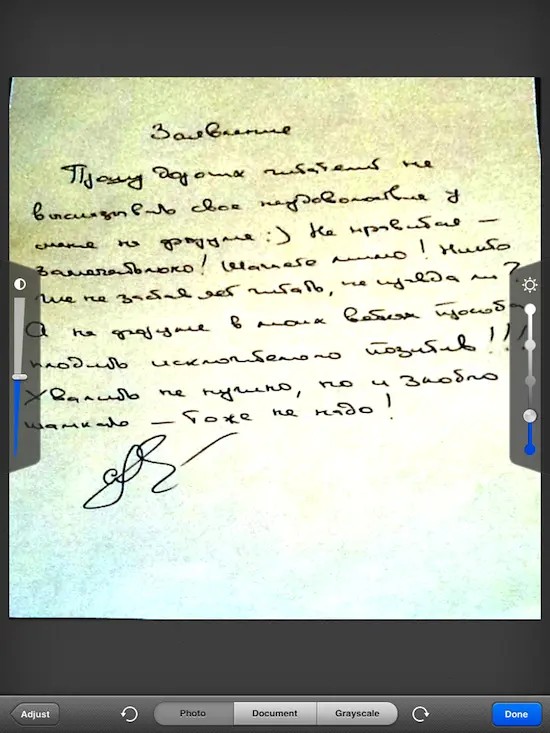 Заявление
Прошу дорогих читателей не
высказывать свое неудовольствие у
меня на форуме :) Не нравится –
замечательно! Шагаете мимо! Никто
же не заставляет читать, не правда ли?
А на форуме в моих ветках просьба
плодить исключительно позитив!!!
Хвалить не нужно, но и злобно
шамкать – тоже не надо!
Adjust
Photo
Document
Grayscale
Done